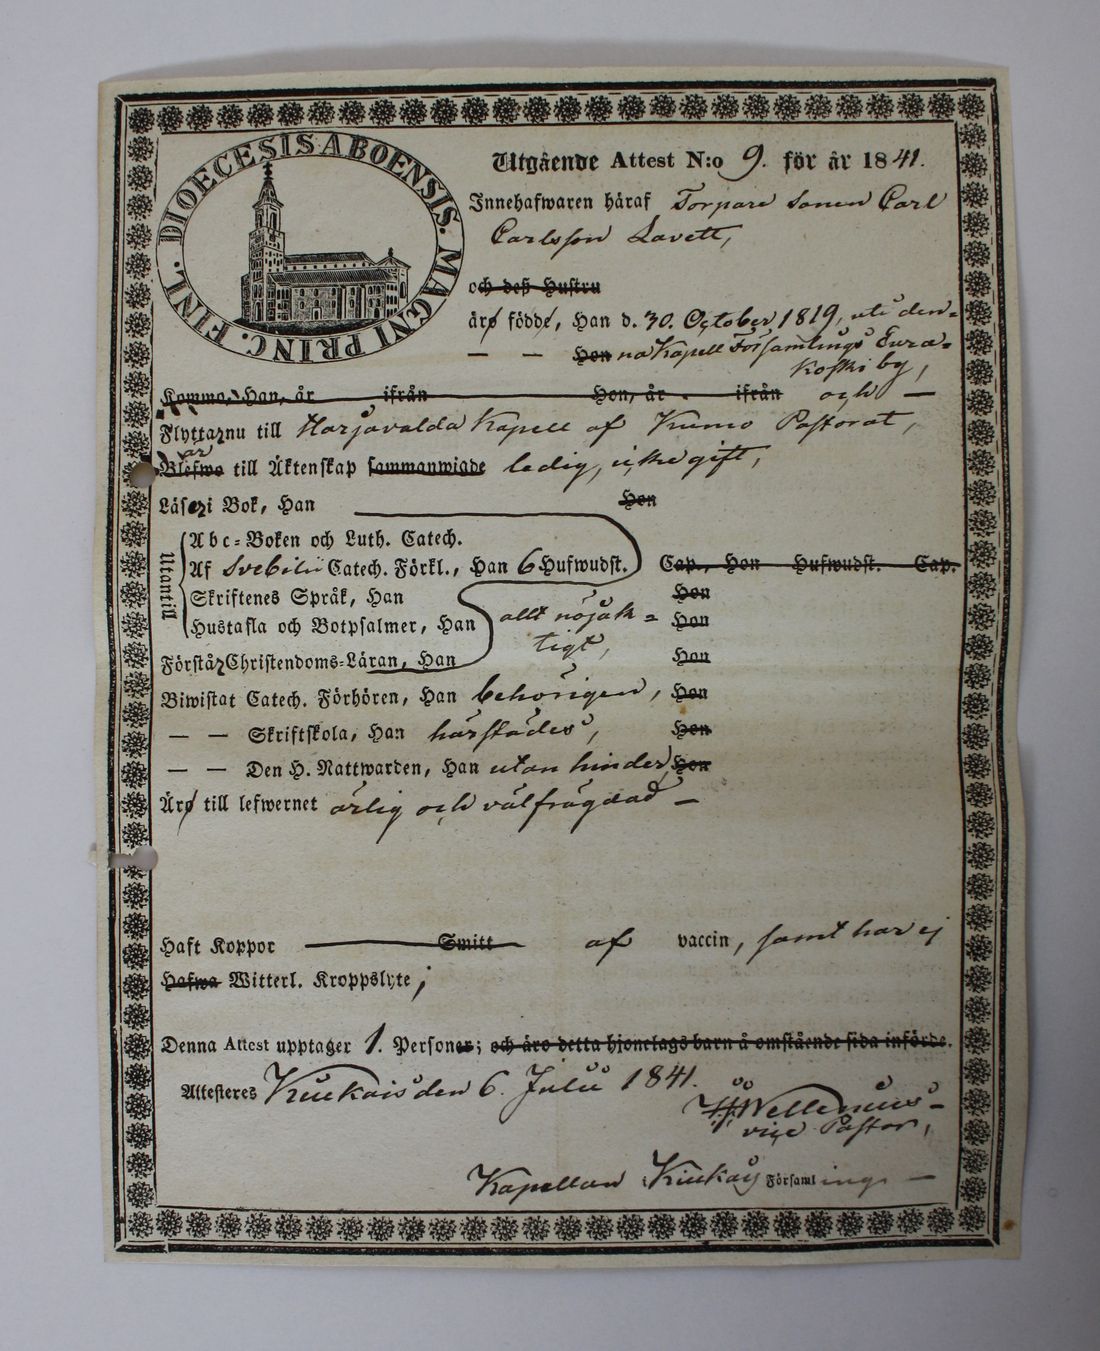 DIOECESIS ABOENSIS. MAGNI PRINC. FINL.
Utgående Attest N:o 9. för år 1841.
Innehafwaren häraf Torpare Sonen Carl
Carlsson Lavett,
och deß Hustru
äro födde, Han d. 30. October 1819, uti den-
— — Hon na Kapell Församlings Eura-
koski by,
Komma, Han, år ifrån Hon, år . ifrån och —
Flyttar nu till Harjavalda Kapell af Kumo Pastorat,
är
Blefwo till Äktenskap sammanwigde ledig, icke gift,
Läser i Bok, Han Hon
Utantill
Abc-Boken och Luth. Catech.
Af Svebilii Catech. Förkl., Han 6 Hufwudst. Cap., Hon Hufwudst. Cap.
Skriftenes Språk, Han Hon
Hustafla och Botpsalmer, Han allt nöjak- Hon
tigt,
Förstår Christendoms-Läran, Han Hon
Biwistat Catech. Förhören, Han behörigen, Hon
— — Skriftskola, Han härstädes, Hon
— — Den H. Nattwarden, Han utan hinder, Hon
Äro till lefwernet ärlig och välfrägdad —
Haft Koppor Smitt af vaccin, samt har ej
Hafwa Witterl. Kroppslyte;
Denna Attest upptager 1. Personer; och äro detta hjonelags barn å omstående sida införde.
Attesteres Kiukais den 6. Julii 1841.
Wellenius
vice Pastor,
Kapellan i Kiukais Församlings —